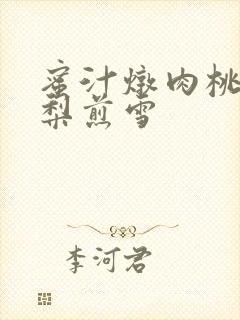 蜜汁燉肉桃
梨煎雪
李河君